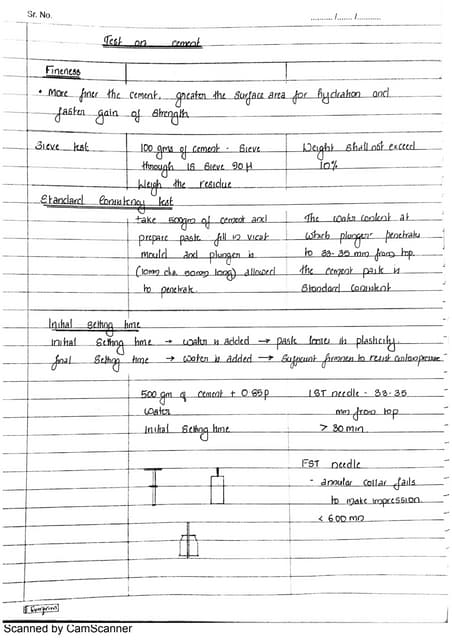 Sr. No.
........../......./...........
Test on cement
Fineness
• More finer the cement, greater the surface area for hydration and
faster gain of strength
Sieve test
100 gms of cement - Sieve
through IS Sieve 90 H
Weigh the residue
Weight shall not exceed
10%
Standard Consistency test
take 500gm of cement and
prepare paste fill in vicat
mould and plunger is
(10mm dia 50mm long) allowed
to penetrate.
The water content at
which plunger penetrate
to 33-35 mm from top.
the cement paste is
Standard consistent
Initial setting time
initial Setting time → water is added → paste loses its plasticity
final Setting time → water is added → firmness to resist
500 gm of cement + 0.85p
water
Initial Setting time
IST needle - 33-35
mm from top
> 30 min.
FST needle
- annular collar fails
to make impression.
< 600 mn
Scanned by CamScanner